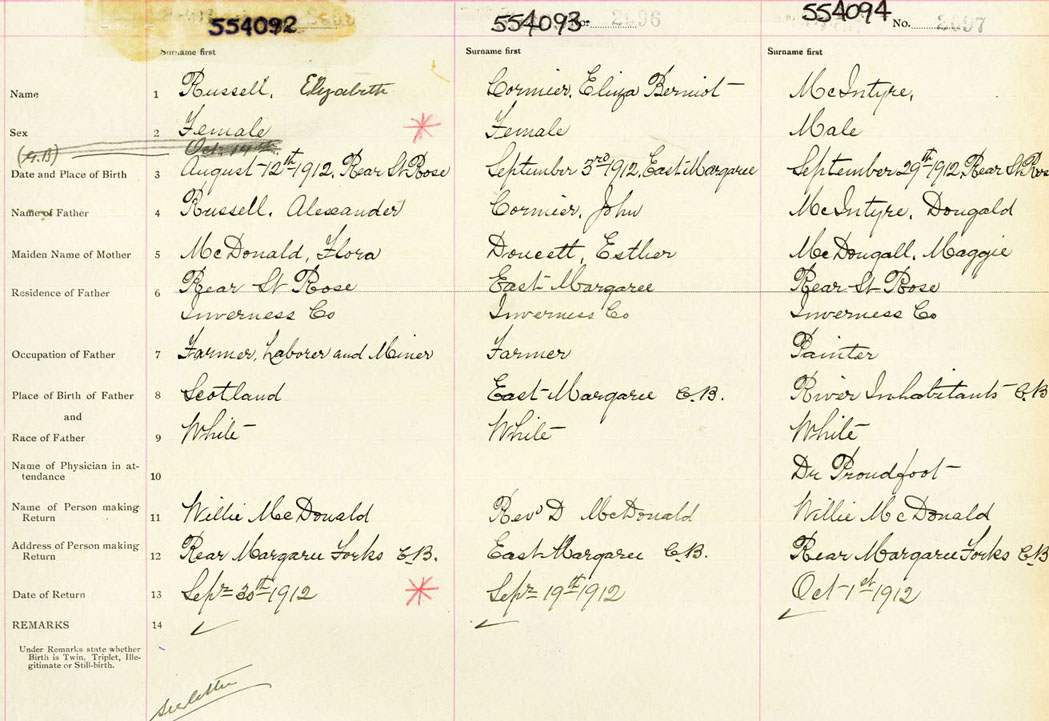 554092 554093 No. 2096 554094 No. 2097
Surname first Surname first Surname first
Name 1 Russell, Elizabeth Cormier, Eliza Bernist McIntyre,
Sex 2 Female Female Male
Oct 14th
Date and Place of Birth 3 August 12th 1912, Rear St Rose September 3rd 1912, East Margaree September 29th 1912, Rear St Rose
Name of Father 4 Russell, Alexander Cormier, John McIntyre, Dougald
Maiden Name of Mother 5 McDonald, Flora Doucett, Esther McDougall, Maggie
Residence of Father 6 Rear St Rose East Margaree Rear St Rose
Inverness Co Inverness Co Inverness Co
Occupation of Father 7 Farmer, Laborer and Miner Farmer Painter
Place of Birth of Father 8 Scotland East Margaree C.B. River Inhabitants C.B
and
Race of Father 9 White White White
Name of Physician in at-
tendance 10 Dr Proudfoot
Name of Person making
Return 11 Willie McDonald Revd D McDonald Willie McDonald
Address of Person making
Return 12 Rear Margaree Forks C.B. East Margaree C.B. Rear Margaree Forks C.B
Date of Return 13 Sepr 30th 1912 Sepr 19th 1912 Oct 1st 1912
REMARKS 14
Under Remarks state whether
Birth is Twin, Triplet, Ille-
gitimate or Still-birth.
see letter